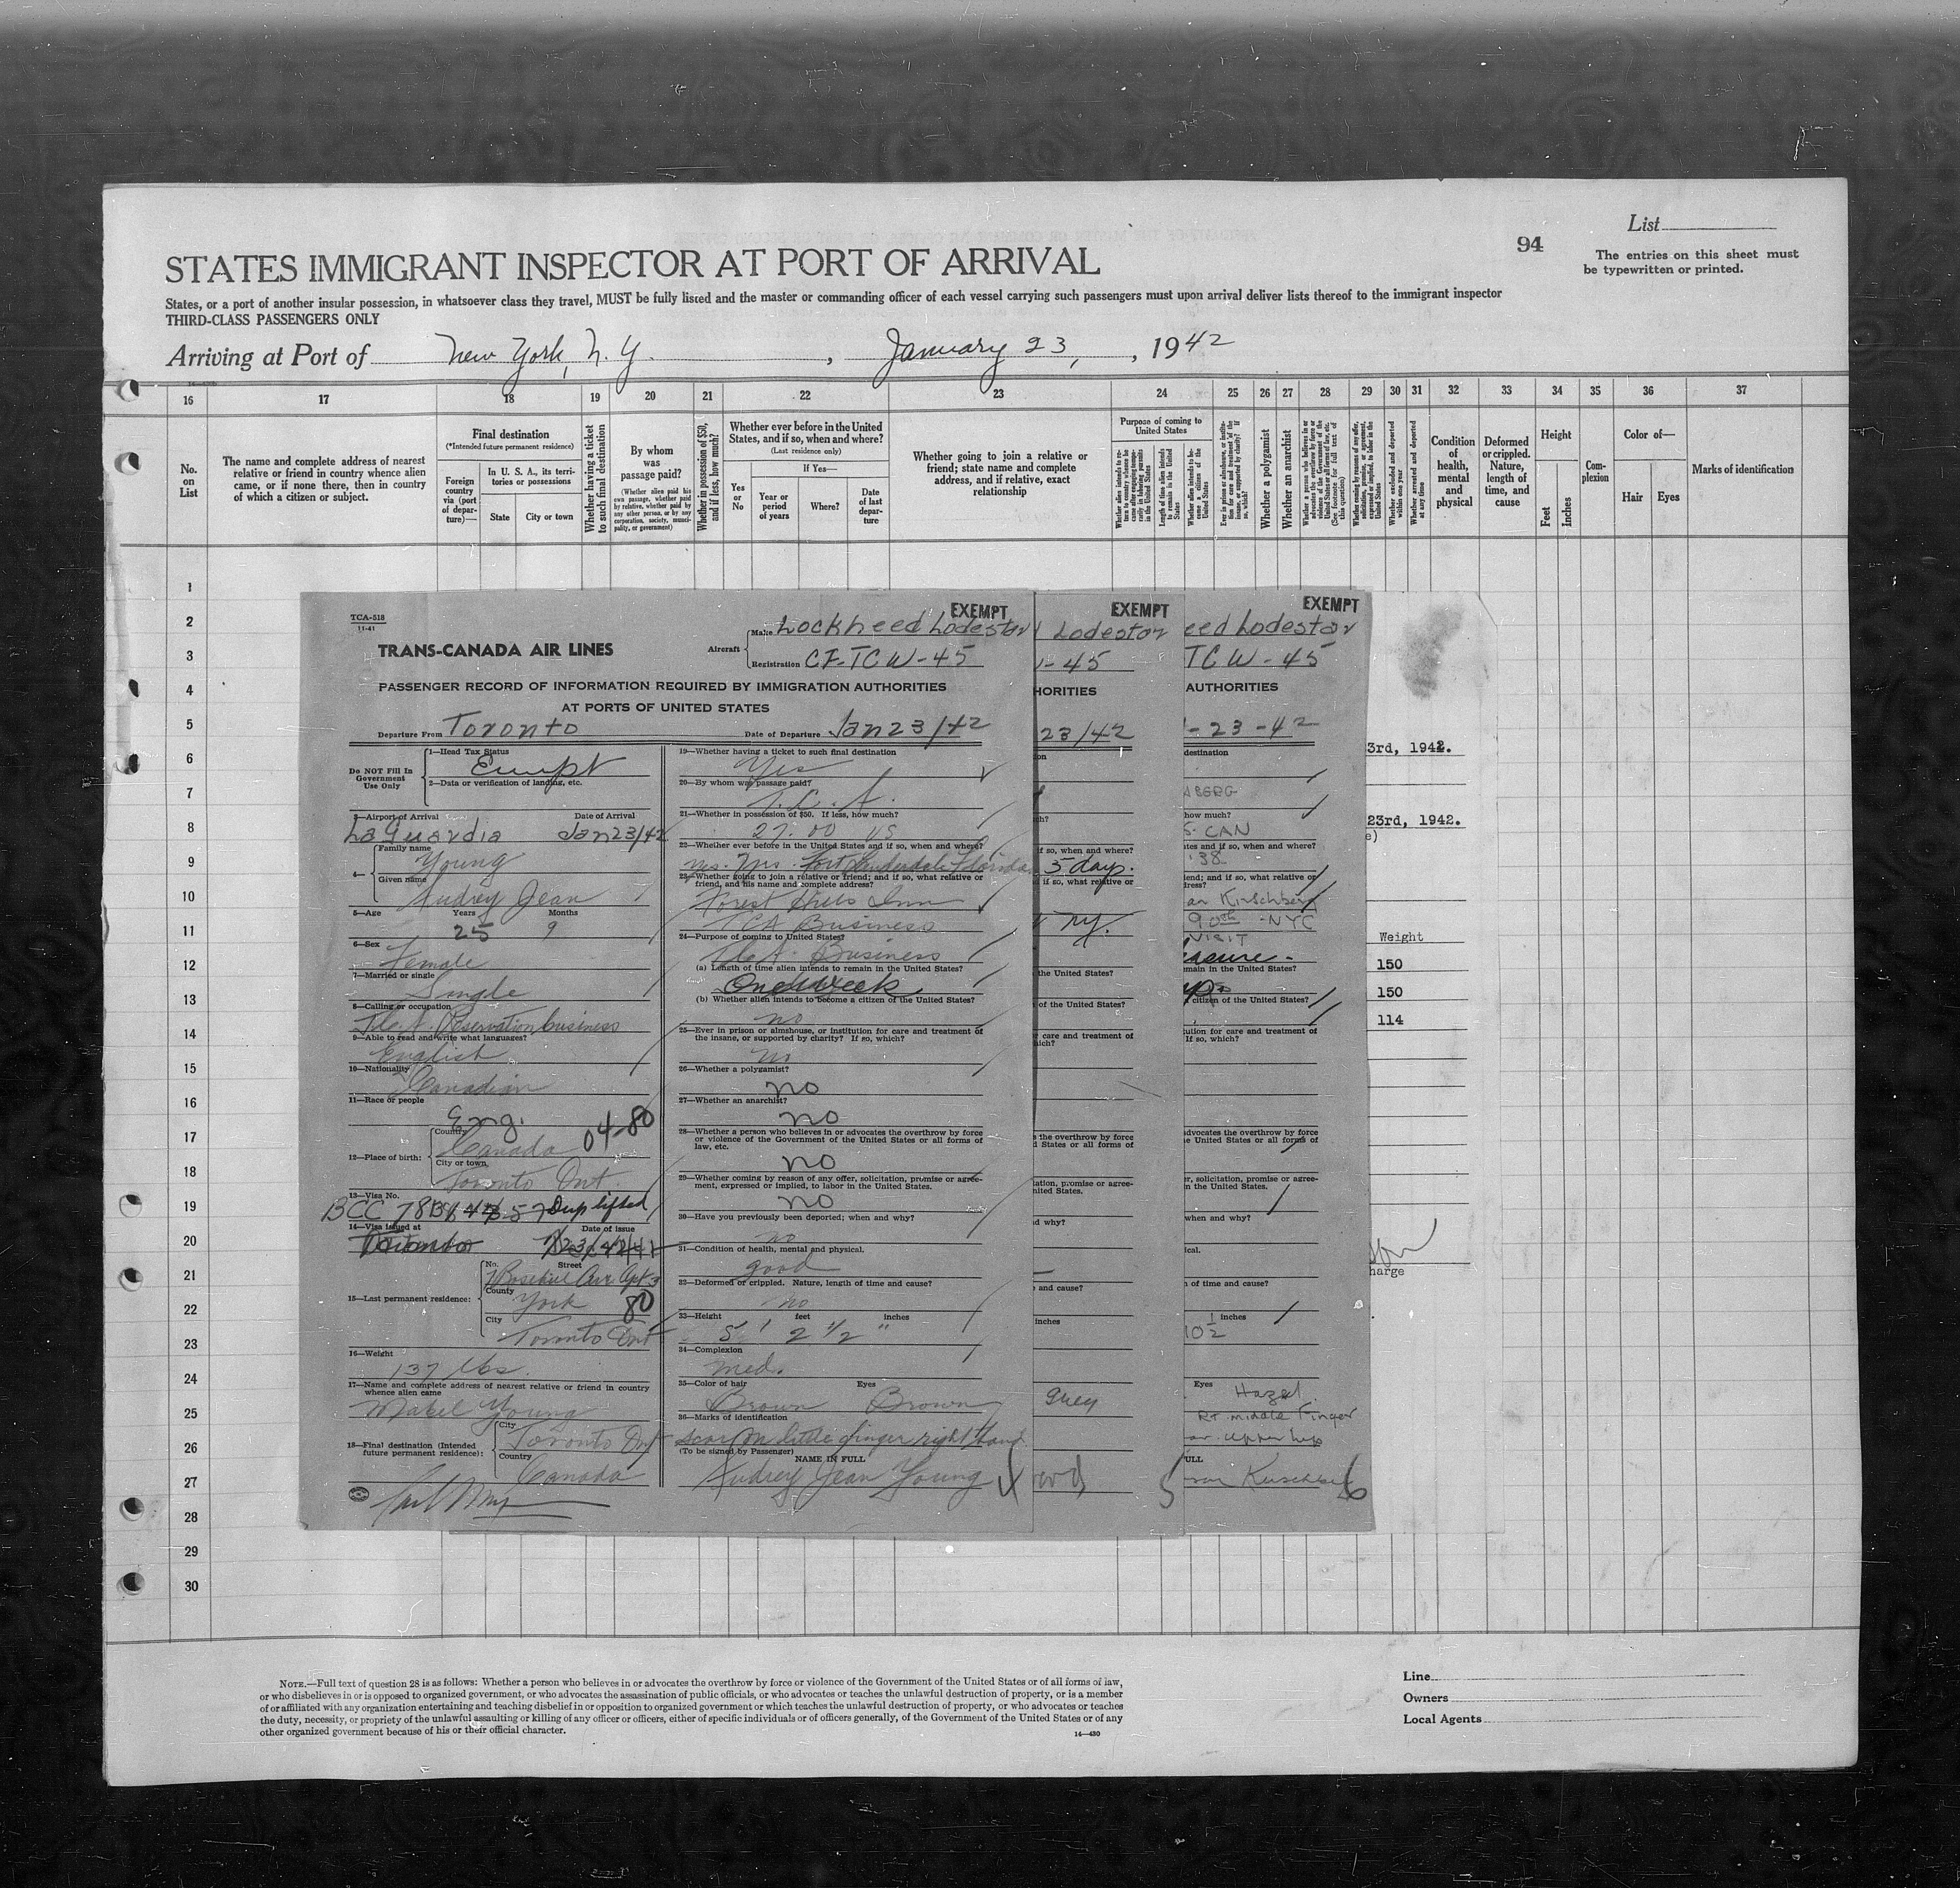 List
94
The entries on this sheet must
be typewritten or printed.
STATES IMMIGRANT INSPECTOR AT PORT OF ARRIVAL
States, or a port of another insular possession, in whatsoever class they travel, MUST be fully listed and the master or commanding officer of each vessel carrying such passengers must upon arrival deliver lists thereof to the immigrant inspector
THIRD-CLASS PASSENGERS ONLY
Arriving at Port of New York, N. Y. , January 23, , 1942
16 17 18 19 20 21 22 23 24 25 26 27 28 29 30 31 32 33 34 35 36 37
No. on List
The name and complete address of nearest relative or friend in country whence alien came, or if none there, then in country of which a citizen or subject.
Final destination
(*Intended future permanent residence)
Foreign country via (port of departure)—
In U. S. A., its territories or possessions
State
City or town
Whether having a ticket to such final destination
By whom was passage paid?
(Whether alien paid his own passage, whether paid by relative, whether paid by any other person, or by any corporation, society, municipality, or government)
Whether in possession of $50, and if less, how much?
Whether ever before in the United States, and if so, when and where?
(Last residence only)
Yes or No
If Yes—
Year or period of years
Where?
Date of last departure
Whether going to join a relative or friend; state name and complete address, and if relative, exact relationship
Purpose of coming to United States
Length of time alien intends to remain in the United States
Whether alien intends to become a citizen of the United States
Whether a polygamist
Whether an anarchist
Whether excluded and deported within one year
Whether arrested and deported at any time
Condition of health, mental and physical
Deformed or crippled. Nature, length of time, and cause
Height
Feet
Inches
Complexion
Color of—
Hair
Eyes
Marks of identification
1
2
3
4
5
6
7
8
9
10
11
12
13
14
15
16
17
18
19
20
21
22
23
24
25
26
27
28
29
30
TCA-518
11-41
EXEMPT
TRANS-CANADA AIR LINES
Aircraft
Make Lockheed Lodestar
Registration CF-TCW-45
PASSENGER RECORD OF INFORMATION REQUIRED BY IMMIGRATION AUTHORITIES
AT PORTS OF UNITED STATES
Departure From Toronto Date of Departure Jan 23/42
Do NOT Fill In
Government
Use Only
1—Head Tax Status
Exempt
2—Data or verification of landing, etc.
3—Airport of Arrival Date of Arrival
La Guardia Jan 23/42
4—
Family name
Young
Given name
Audrey Jean
5—Age Years Months
25 9
6—Sex
Female
7—Married or single
Single
8—Calling or occupation
T.C.A. Reservation business
9—Able to read and write what languages?
English
10—Nationality
Canadian
11—Race or people
Eng.
12—Place of birth:
Country
Canada 04-80
City or town
Toronto Ont.
13—Visa No.
BCC Dup lifted
14—Visa issued at Date of issue
Toronto
15—Last permanent residence:
No. Street
Apt 3
County
York 80
City
Toronto Ont
16—Weight
137 lbs.
17—Name and complete address of nearest relative or friend in country
whence alien came
Mabel Young
18—Final destination (Intended
future permanent residence):
City
Toronto Ont
Country
Canada
19—Whether having a ticket to such final destination
Yes
20—By whom was passage paid?
T.C.A.
21—Whether in possession of $50. If less, how much?
27.00 US
22—Whether ever before in the United States and if so, when and where?
Fort Lauderdale Florida
23—Whether going to join a relative or friend; and if so, what relative or
friend, and his name and complete address?
Forest Hills Inn
TCA Business
24—Purpose of coming to United States?
T.C.A. Business
(a) Length of time alien intends to remain in the United States?
One Week
(b) Whether alien intends to become a citizen of the United States?
no
25—Ever in prison or almshouse, or institution for care and treatment of
the insane, or supported by charity? If so, which?
no
26—Whether a polygamist?
no
27—Whether an anarchist?
no
28—Whether a person who believes in or advocates the overthrow by force
or violence of the Government of the United States or all forms of
law, etc.
no
29—Whether coming by reason of any offer, solicitation, promise or agree-
ment, expressed or implied, to labor in the United States.
no
30—Have you previously been deported; when and why?
no
31—Condition of health, mental and physical.
good
32—Deformed or crippled. Nature, length of time and cause?
no
33—Height feet inches
5' 2 1/2"
34—Complexion
med.
35—Color of hair Eyes
Brown Brown
36—Marks of identification
scar on little finger right hand
(To be signed by Passenger)
NAME IN FULL
Audrey Jean Young 4
EXEMPT
Lodestar
- 45
HORITIES
23/42
if so, when and where?
5 days.
if so, what relative or
ny.
the United States?
of the United States?
care and treatment of
the overthrow by force
States or all forms of
ation, promise or agree-
nited States.
d why?
and cause?
inches
grey
5
EXEMPT
eed Lodestar
TCW - 45
AUTHORITIES
- 23 - 42
destination
ABERG
how much?
CAN
ates and if so, when and where?
'38
iend; and if so, what relative or
dress?
Kirschberg
90th - NYC
VISIT
easure -
emain in the United States?
citizen of the United States?
tution for care and treatment of
If so, which?
dvocates the overthrow by force
e United States or all forms of
er, solicitation, promise or agree-
n the United States.
when and why?
ical.
n of time and cause?
inches
10 1/2
Eyes
Hazel
Rt. middle Finger
upper lip
FULL
6
3rd, 1942.
23rd, 1942.
e)
Weight
150
150
114
harge
NOTE.—Full text of question 28 is as follows: Whether a person who believes in or advocates the overthrow by force or violence of the Government of the United States or of all forms of law,
or who disbelieves in or is opposed to organized government, or who advocates the assassination of public officials, or who advocates or teaches the unlawful destruction of property, or is a member
of or affiliated with any organization entertaining and teaching disbelief in or opposition to organized government or which teaches the unlawful destruction of property, or who advocates or teaches
the duty, necessity, or propriety of the unlawful assaulting or killing of any officer or officers, either of specific individuals or of officers generally, of the Government of the United States or of any
other organized government because of his or their official character.
14—430
Line
Owners
Local Agents